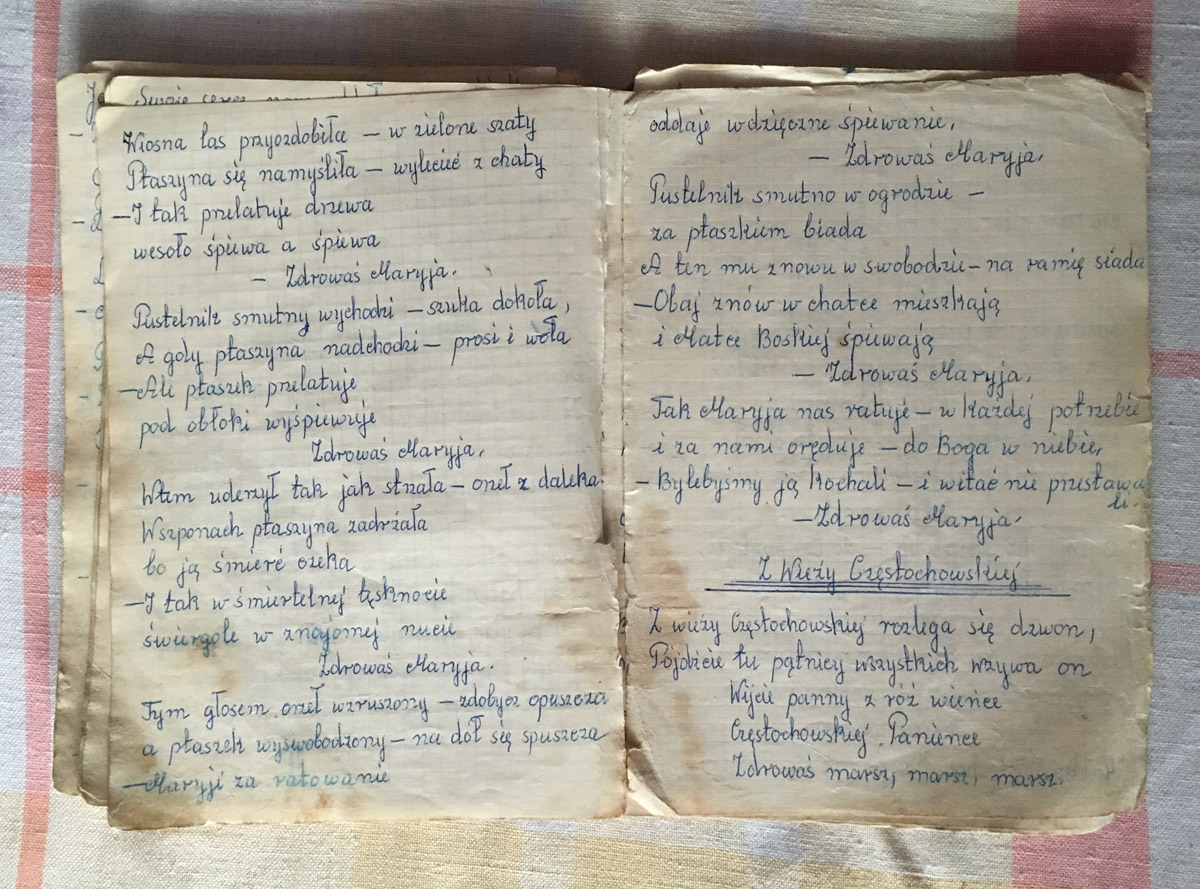 Swoje
Wiosna las przyozdobiła – w zielone szaty
Ptaszyna się namyśliła – wylecieć z chaty
– I tak przelatuje drzewa
wesoło śpiewa a śpiewa
– Zdrowaś Maryja.
Pustelnik smutny wychodzi – szuka dokoła,
A gdy ptaszyna nadchodzi – prosi i woła
– Ale ptaszek przelatuje
pod obłoki wyśpiewuje
Zdrowaś Maryja,
Wtem uderzył tak jak strzała – orzeł z daleka.
Wszponach ptaszyna zadrżała
bo ją śmierć czeka
– I tak w śmiertelnej tęsknocie
świergole w znajomej nucie
Zdrowaś Maryja.
Tym głosem orzeł wzruszony – zdobycz opuszcza
a ptaszek wyswobodzony – na dół się spuszcza
– Maryji za ratowanie
oddaje wdzięczne śpiewanie,
– Zdrowaś Maryja,
Pustelnik smutno w ogrodzie –
za ptaszkiem biada
A ten mu znowu w swobodzie – na ramię siada
– Obaj znów w chatce mieszkają
i Matce Boskiej śpiewają
– Zdrowaś Maryja,
Tak Maryja nas ratuje – w każdej potrzebie
i za nami oręduje – do Boga w niebie,
– Bylebyśmy ją kochali – i witać nie przestawa
li.
– Zdrowaś Maryja.
Z Wieży Częstochowskiej
Z wieży Częstochowskiej rozlega się dzwon,
Pojdzcie tu pątnicy wszystkich wzywa on
Wijcie panny z róż wieńce
Częstochowskiej Panience
Zdrowaś marsz, marsz, marsz.